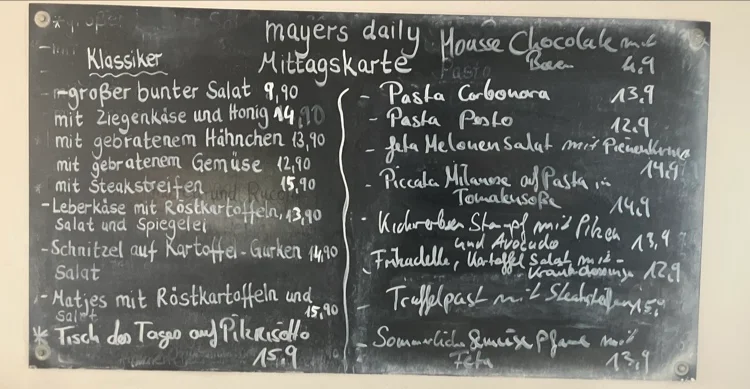 mayers daily
Mittagskarte
Klassiker
-großer bunter Salat 9,90
mit Ziegenkäse und Honig 14,90
mit gebratenem Hähnchen 13,90
mit gebratenem Gemüse 12,90
mit Steakstreifen 15,90
-Leberkäse mit Röstkartoffeln, 13,90
Salat und Spiegelei
-Schnitzel auf Kartoffel-Gurken 14,90
Salat
-Matjes mit Röstkartoffeln und
Salat 15,90
* Tisch des Tages auf Pilzrisotto
15,9
Mousse Chocolate mit
4,9
- Pasta Carbonara 13,9
- Pasta Pesto 12,9
- feta Melonen Salat mit
14,9
- Piccata Milanese auf Pasta in
Tomatensoße 14,9
- Stampf mit Pilzen
und Avocado 13,9
- Frikadelle, Kartoffel Salat mit
12,9
- Trüffelpast mit Steakstreifen 15,9
- Sommerliche Gemüse Pfanne mit
Feta 13,9